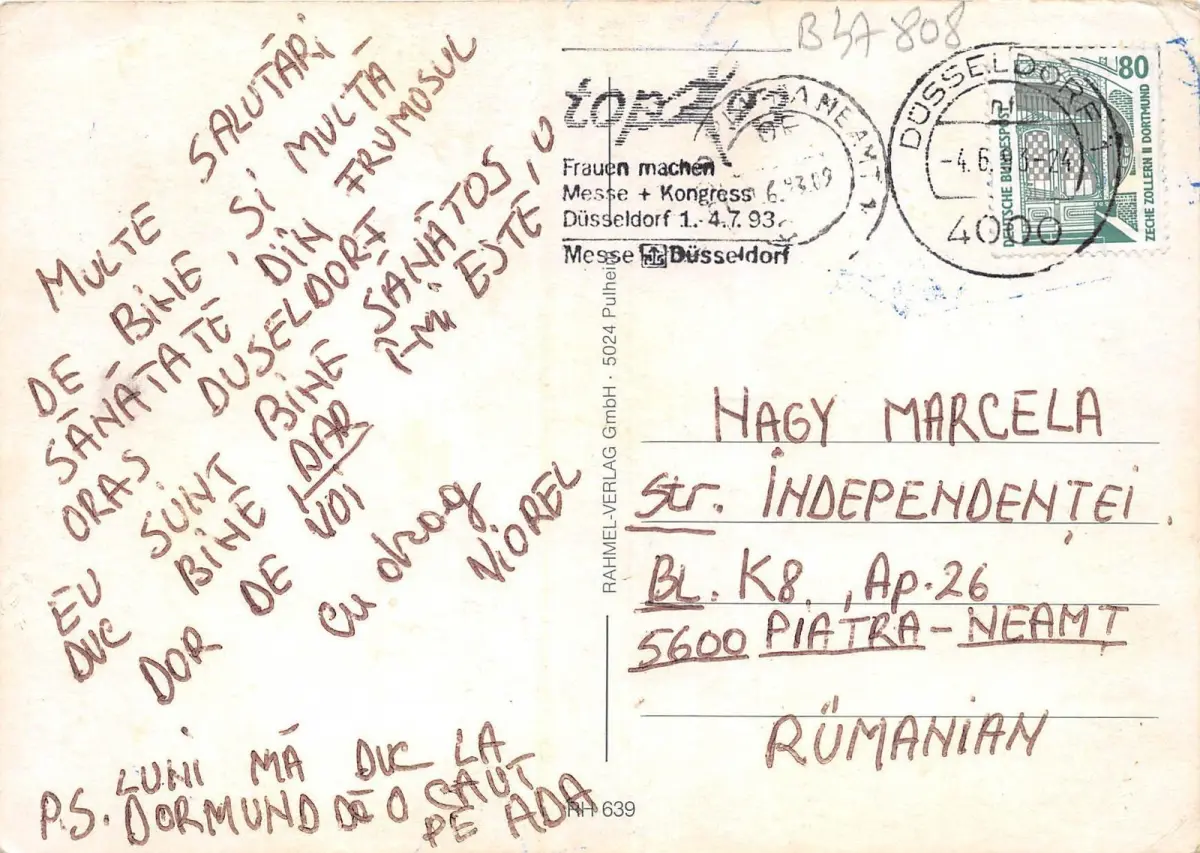 B47 808
MULTE SALUTĂRI
DE BINE, SI MULTĂ
SĂNĂTATE DIN FRUMOSUL
ORAS DUSELDORF
EU SUNT BINE SĂNĂTOS, O
DUC BINE DAR ÎMI ESTE
DOR DE VOI
cu drag
VIOREL
P.S. LUNI MĂ DUC LA
DORMUND SĂ O CAUT
PE ADA
top
Frauen machen
Messe + Kongress
Düsseldorf 1.-4.7.93
Messe Düsseldorf
NEAMT 1
DÜSSELDORF 1
-4.6.93-24
4000
80
DEUTSCHE BUNDESPOST
ZECHE ZOLLERN II DORTMUND
RAHMEL-VERLAG GmbH · 5024 Pulheim
HAGY MARCELA
Str. INDEPENDENȚEI.
BL. K8, Ap. 26
5600 PIATRA-NEAMȚ
RÜMANIAN
RH 639